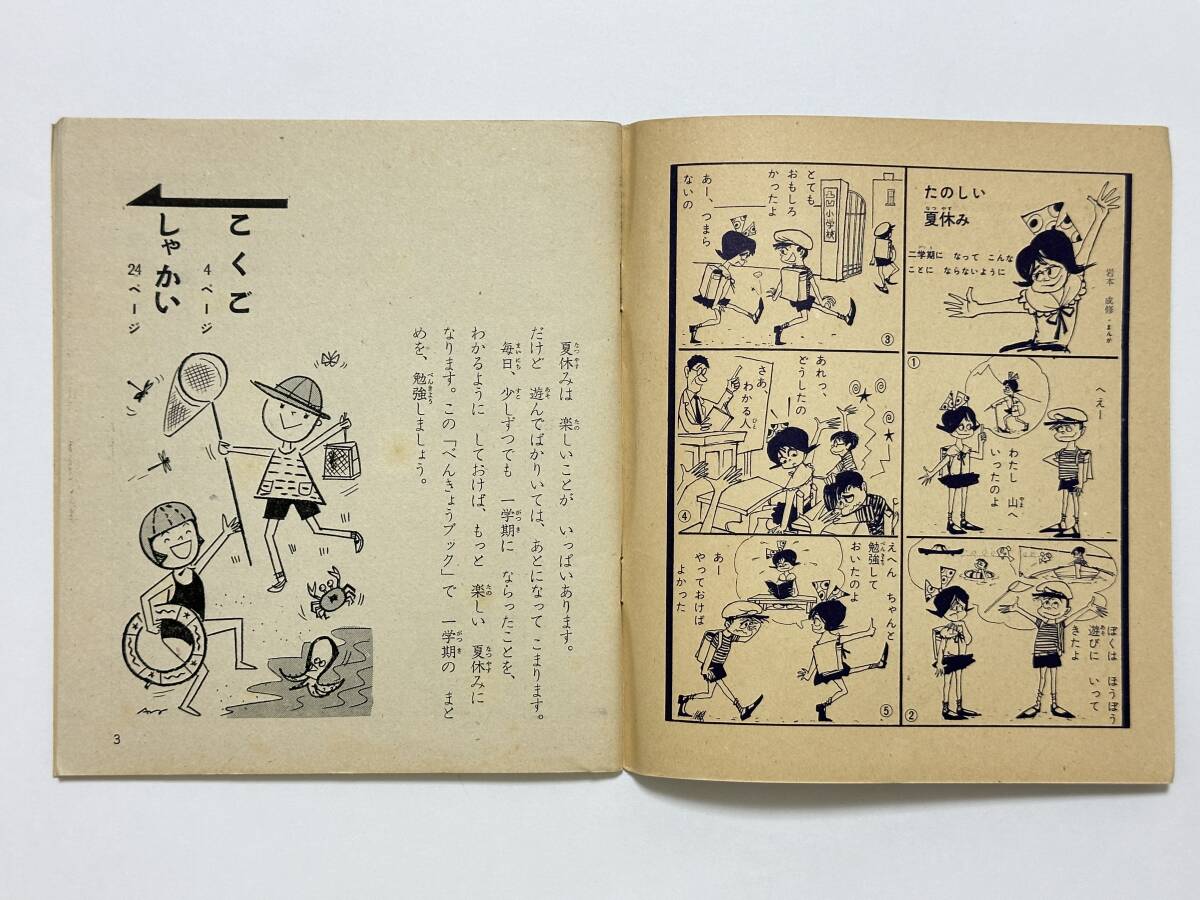 たのしい
夏休み
なつやす
二学期に なって こんな
がっき
ことに ならないように
岩本 成修・まんが
①
へえー
わたし 山へ
やま
いったのよ
②
ぼくは ほうぼう
遊びに いって
あそ
きたよ
③
とても
おもしろ
かったよ
あー、つまら
ないの
凸凹小学校
④
あれっ、
どうしたの
さあ、
わかる人
ひと
⑤
えへん ちゃんと
勉強して
べんきょう
おいたのよ
あー
やっておけば
よかった
夏休みは 楽しいことが いっぱいあります。
なつやす たの
だけど 遊んでばかりいては、あとになって こまります。
あそ
毎日、少しずつでも 一学期に ならったことを、
まいにち すこ がっき
わかるように しておけば、もっと 楽しい 夏休みに
たの なつやす
なります。この「べんきょうブック」で 一学期の まと
がっき
めを、勉強しましょう。
べんきょう
こくご
4ページ
しゃかい
24ページ
3